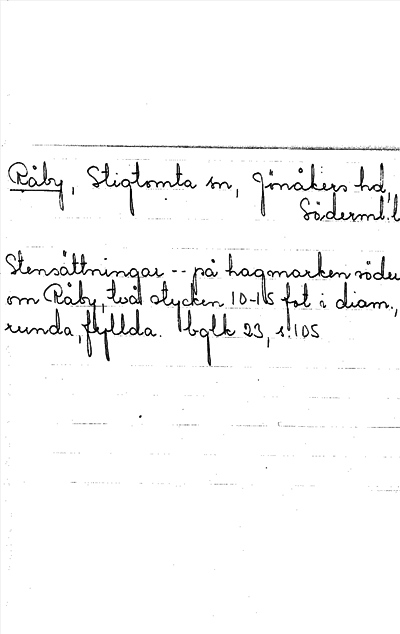 Råby, Stigtomta sn, Jönåkers hd,
Söderml.l
Stensättningar -- på hagmarken söder
om Råby, två stycken 10-15 fot i diam.,
runda, fyllda. bglk 23, s. 105